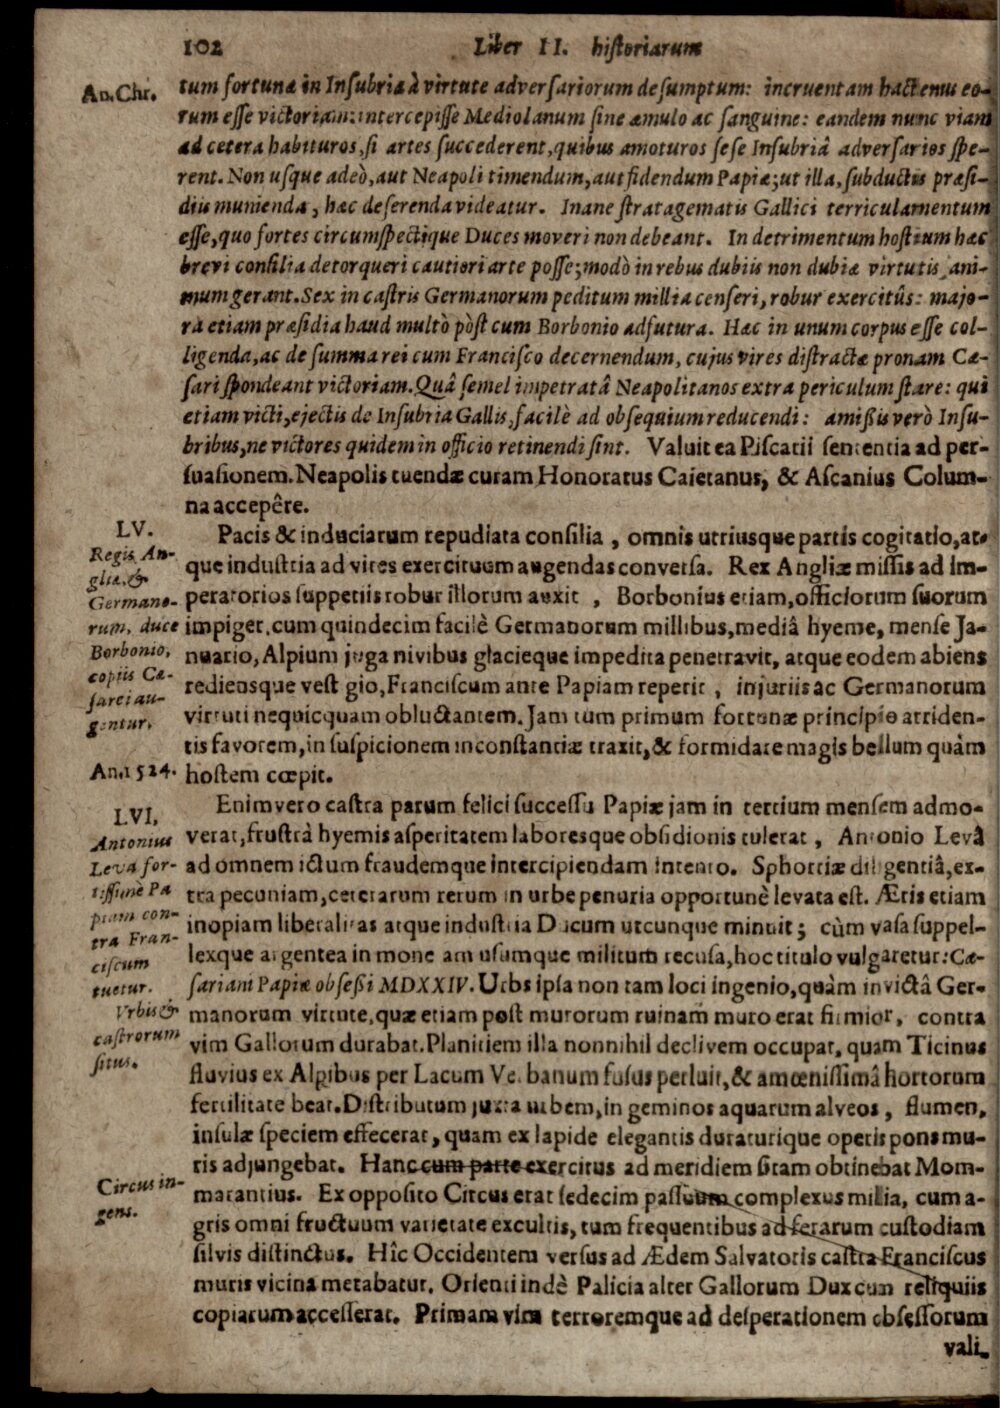 102 Liber II. historiarum
An. Chr.
tum fortunæ in Insubria à virtute adversariorum desumptum: incruentam hactenus eo-
rum esse victoriam: intercepisse Mediolanum sine æmulo ac sanguine: eandem nunc viam
ad cetera habituros, si artes succederent, quibus amoturos sese Insubriâ adversarios spe-
rent. Non usque adeò, aut Neapoli timendum, aut fidendum Papiæ; ut illa, subductis præsi-
diis munienda, hæc deserenda videatur. Inane stratagematis Gallici terriculamentum
esse, quo fortes circumspectique Duces moveri non debeant. In detrimentum hostium hæc
brevi consilia detorqueri cautiori arte posse; modò in rebus dubiis non dubiæ virtutis ani-
mum gerant. Sex in castris Germanorum peditum millia censeri, robur exercitûs: majo-
ra etiam præsidia haud multò pòst cum Borbonio adfutura. Hæc in unum corpus esse col-
ligenda, ac de summa rei cum Francisco decernendum, cujus vires distractæ pronam Cæ-
sari spondeant victoriam. Quâ semel impetratâ Neapolitanos extra periculum stare: qui
etiam victi, ejectis de Insubria Gallis, facilè ad obsequium reducendi: amißis verò Insu-
bribus, ne victores quidem in officio retinendi sint. Valuit ea Piscarii sententia ad per-
suasionem. Neapolis tuendæ curam Honoratus Caietanus, & Ascanius Colum-
na accepêre.
LV.
Regis An-
gliæ, &
Germano-
rum, duce
Borbonio,
copiis Cæ-
sarei au-
gentur.
An. 1524.
Pacis & induciarum repudiata consilia, omnis utriusque partis cogitatio, at-
que industria ad vires exercituum augendas conversa. Rex Angliæ missis ad Im-
peratorios suppetiis robur illorum auxit, Borbonius etiam, officiorum suorum
impiger, cum quindecim facilè Germanorum millibus, mediâ hyeme, mense Ja-
nuario, Alpium juga nivibus glacieque impedita penetravit, atque eodem abiens
rediensque vestigio, Franciscum ante Papiam reperit, injuriis ac Germanorum
virtuti nequicquam obluctantem. Jam tum primum fortunæ principio arriden-
tis favorem, in suspicionem inconstantiæ traxit, & formidare magis bellum quàm
hostem cœpit.
LVI.
Antonius
Leva for-
tissimè Pa
piam con-
tra Fran-
ciscum
tuetur.
Urbis &
castrorum
situs.
Circus in-
gens.
Enimvero castra parum felici successu Papiæ jam in tertium mensem admo-
verat, frustrà hyemis asperitatem laboresque obsidionis tulerat, Antonio Levâ
ad omnem ictum fraudemque intercipiendam intento. Sphortiæ diligentiâ, ex-
tra pecuniam, ceterarum rerum in urbe penuria opportunè levata est. Æris etiam
inopiam liberalitas atque industria Ducum utcunque minuit; cùm vasa suppel-
lexque argentea in monetam usumque militum recusa, hoc titulo vulgaretur: Cæ-
sariani Papiæ obseßi MDXXIV. Urbs ipsa non tam loci ingenio, quàm invictâ Ger-
manorum virtute, quæ etiam post murorum ruinam muro erat firmior, contra
vim Gallorum durabat. Planitiem illa nonnihil declivem occupat, quam Ticinus
fluvius ex Alpibus per Lacum Verbanum fusus perluit, & amœnissimâ hortorum
fertilitate beat. Distributum juxta urbem, in geminos aquarum alveos, flumen,
insulæ speciem effecerat, quam ex lapide elegantis duraturique operis pons mu-
ris adjungebat. Hanc cum parte exercitus ad meridiem sitam obtinebat Mom-
marantius. Ex opposito Circus erat sedecim passuum complexus milia, cum a-
gris omni fructuum varietate excultis, tum frequentibus ad ferarum custodiam
silvis distinctus. Hîc Occidentem versus ad Ædem Salvatoris castra Franciscus
muris vicina metabatur. Orienti indè Palicia alter Gallorum Dux cum reliquiis
copiarum accesserat. Primam vim terroremque ad desperationem obsessorum
vali-